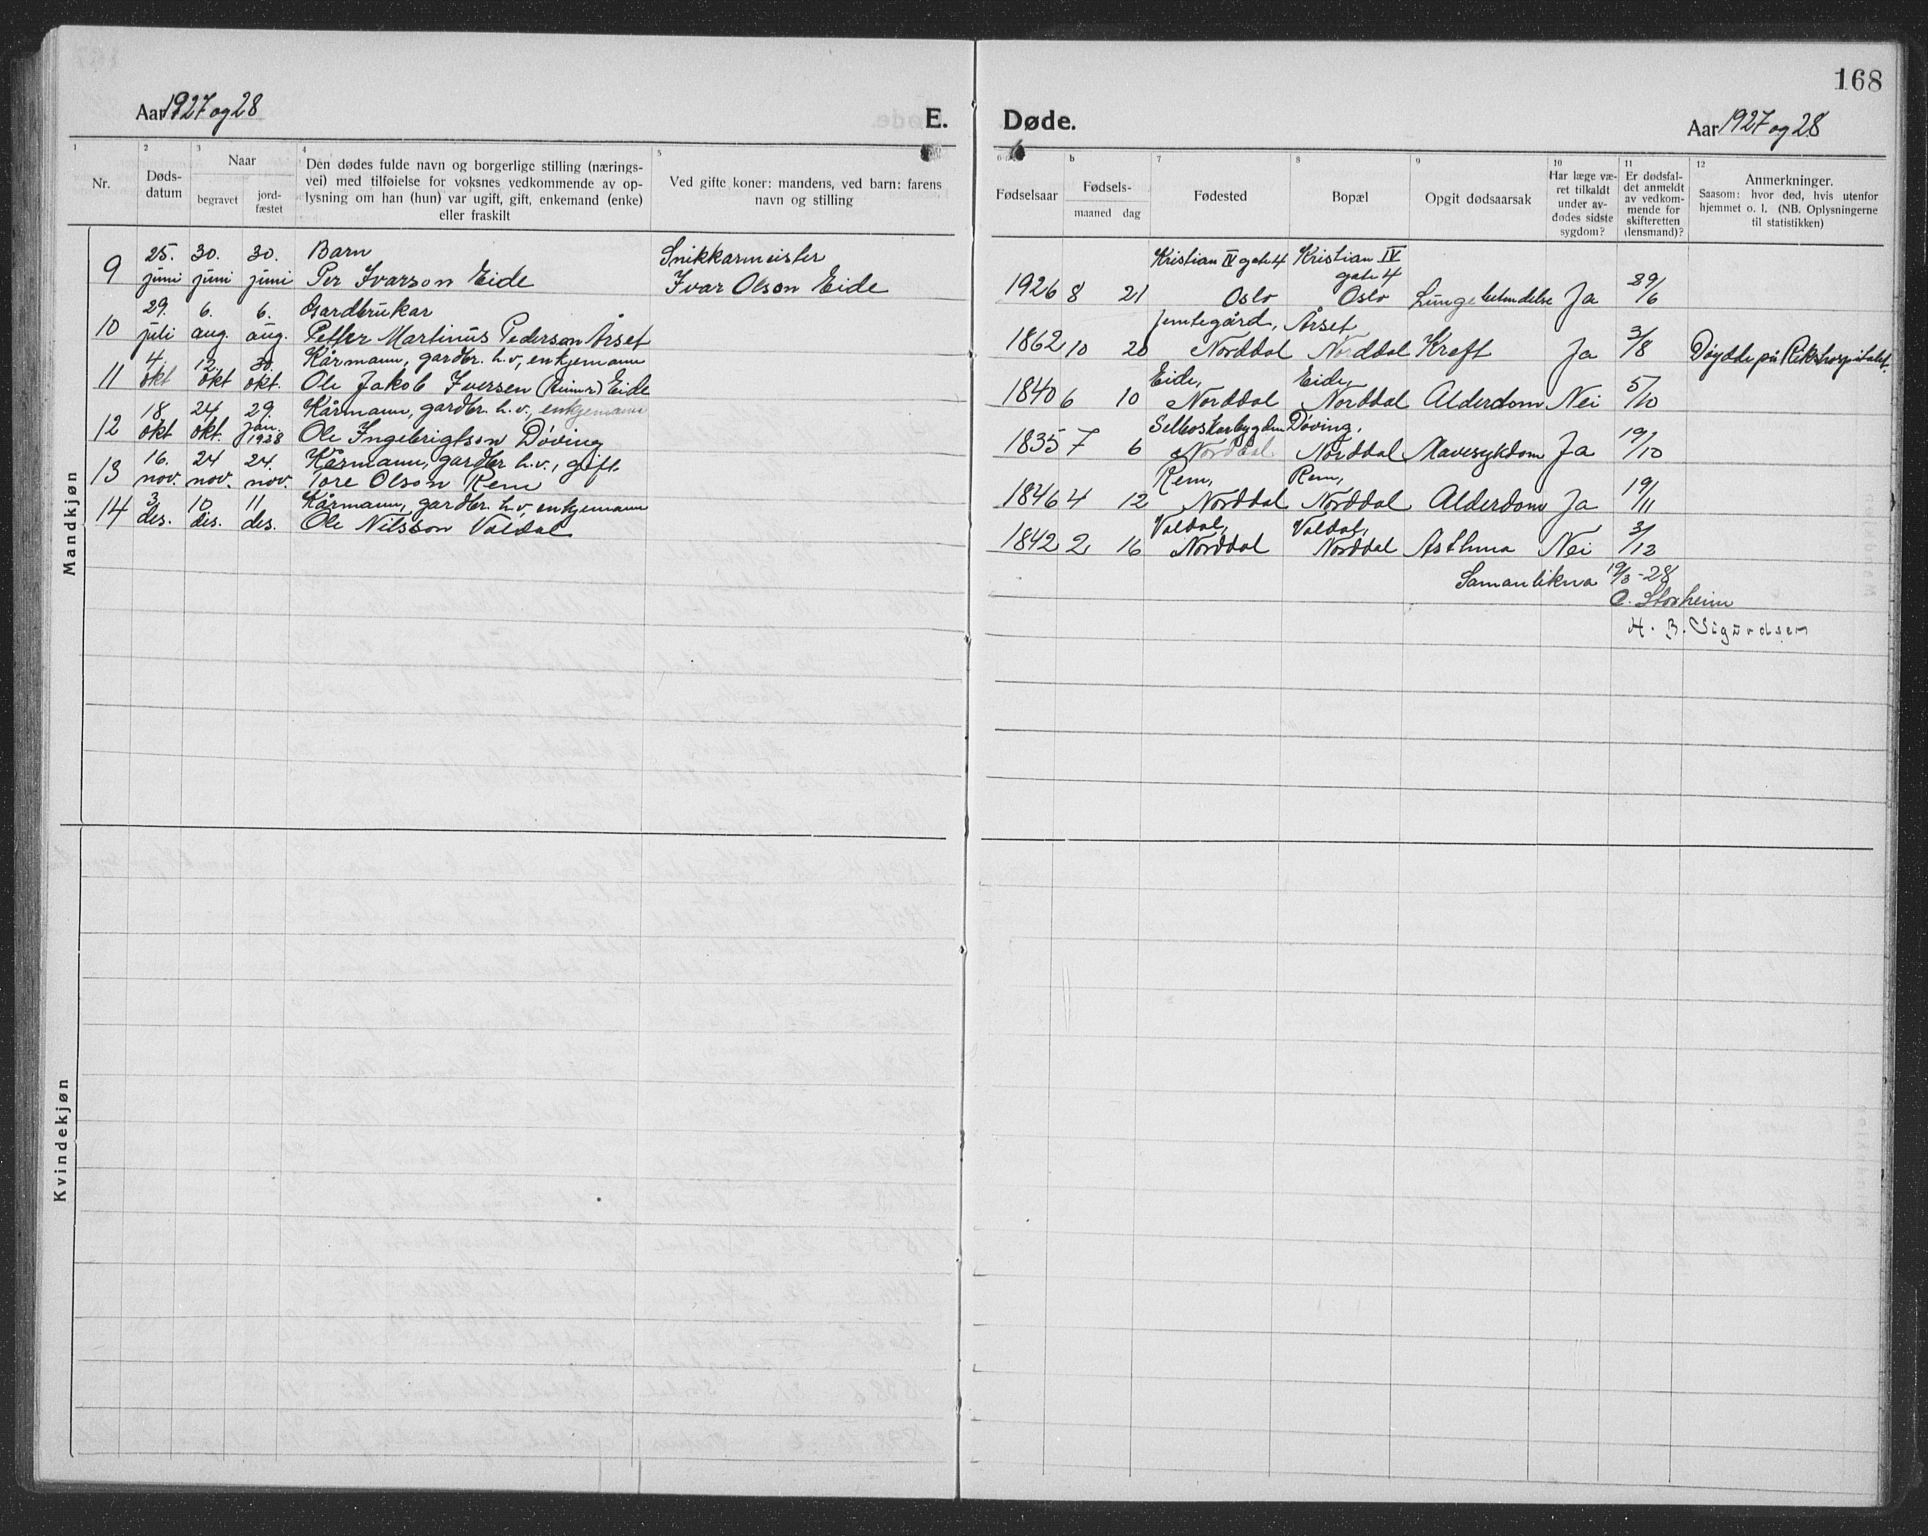 168
Aar 1927 og 28
E. Døde.
Aar 1927 og 28
1 2 3 4 5
Nr.
Døds-
datum
Naar
begravet
jord-
fæstet
Den dødes fulde navn og borgerlige stilling (nærings-
vei) med tilføielse for voksnes vedkommende av op-
lysning om han (hun) var ugift, gift, enkemand (enke)
eller fraskilt
Ved gifte koner: mandens, ved barn: farens
navn og stilling
b 7 8 9 10 11 12
Fødselsaar
Fødsels-
maaned dag
Fødested
Bopæl
Opgit dødsaarsak
Har læge væ-
ret tilkaldt
under av-
dødes sidste
sygdom?
Er dødsfal-
det anmeldt
av vedkom-
mende for
skifteretten
(lensmand)?
Anmerkninger.
Saasom: hvor død, hvis utenfor
hjemmet o. l. (NB. Oplysningerne
til statistikken)
Mandkjøn
25. 30. 30. Barn Snikkarmeister Kristian IV gate 4 Kristian IV
gate 4
9 juni juni juni Per Ivarson Eide Ivar Olson Eide 1926 8 21 Oslo Oslo Lungebetendelse Ja 29/6
29. 6. 6. Gardbrukar Jemtegård, Årset
10 juli aug. aug. Petter Martinus Pederson Årset 1862 10 20 Norddal Norddal Kreft Ja 3/8 Døydde på Rikshospitalet.
4. 12. 30. Kårmann, gardbr. h.v., enkjemann Eide, Eide,
11 okt okt okt. Ole Jakob Iversen (Reiners) Eide 1840 6 10 Norddal Norddal Alderdom Nei 5/10
18. 24. 29. Kårmann, gardbr. h.v., enkjemann Døving,
12 okt okt. jan. 1928 Ole Ingebrigtson Døving 1835 7 6 Norddal Norddal Mavesykdom Ja 19/10
16. 24 24. Kårmann, gardbr. h.v., gift Rem, Rem,
13 nov. nov. nov. Tore Olson Rem 1846 4 12 Norddal Norddal Alderdom Ja 19/11
3. 10 11 Kårmann, gardbr. h.v., enkjemann Valdal, Valdal,
14 des. des. des. Ole Nilsson Valdal 1842 2 16 Norddal Norddal Asthma Nei 3/12
Samanlikna 19/3-28
O. Storheim
H. B. Sigurdsen
Kvindekjøn